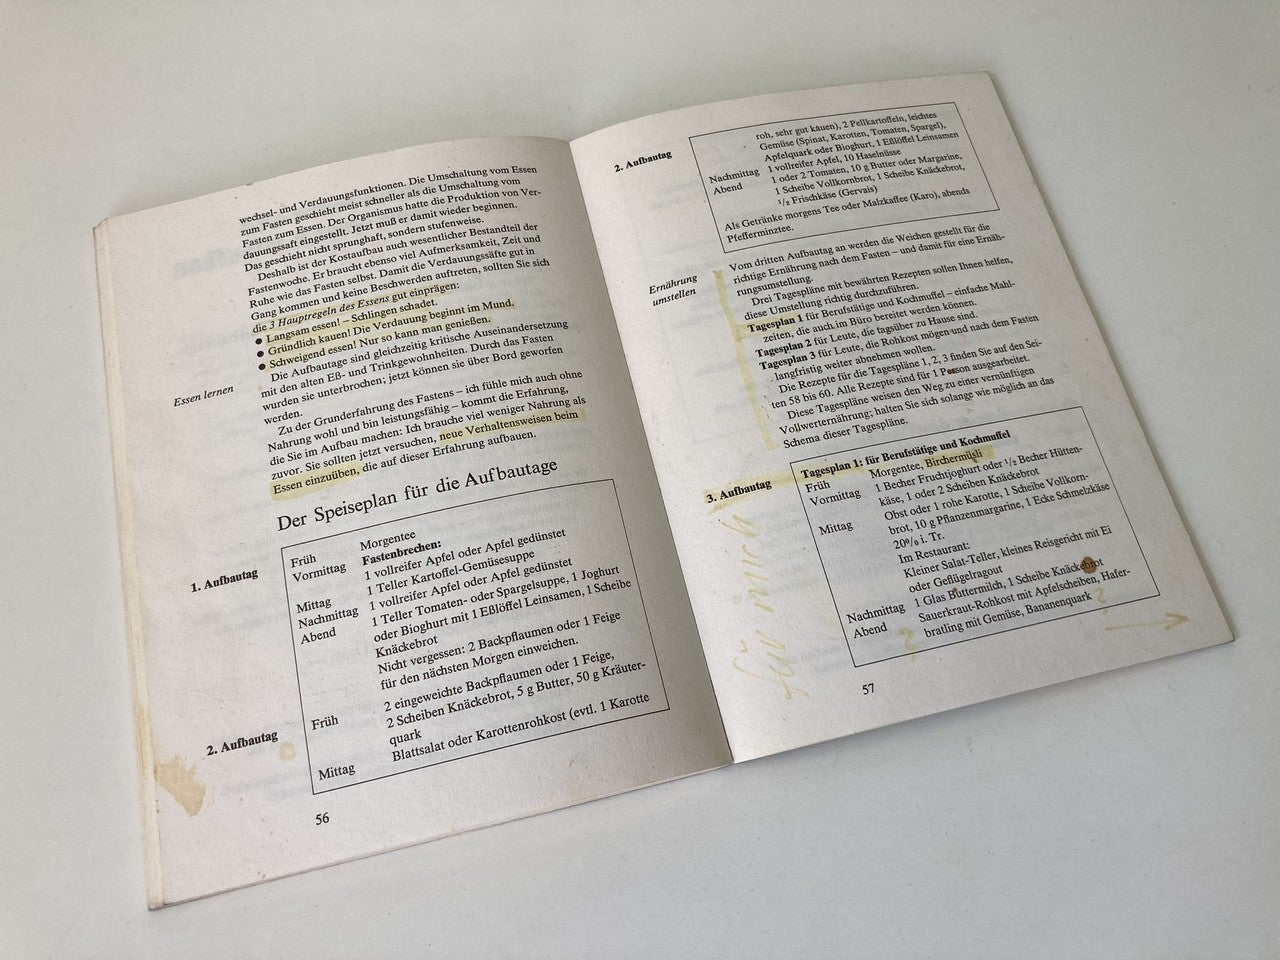 wechsel- und Verdauungsfunktionen. Die Umschaltung vom Essen
zum Fasten geschieht meist schneller als die Umschaltung vom
Fasten zum Essen. Der Organismus hatte die Produktion von Ver-
dauungssaft eingestellt. Jetzt muß er damit wieder beginnen.
Das geschieht nicht sprunghaft, sondern stufenweise.
Deshalb ist der Kostaufbau auch wesentlicher Bestandteil der
Fastenwoche. Er braucht ebenso viel Aufmerksamkeit, Zeit und
Ruhe wie das Fasten selbst. Damit die Verdauungssäfte gut in
Gang kommen und keine Beschwerden auftreten, sollten Sie sich
die 3 Hauptregeln des Essens gut einprägen:
● Langsam essen! – Schlingen schadet.
● Gründlich kauen! Die Verdauung beginnt im Mund.
● Schweigend essen! Nur so kann man genießen.
Essen lernen
Die Aufbautage sind gleichzeitig kritische Auseinandersetzung
mit den alten Eß- und Trinkgewohnheiten. Durch das Fasten
wurden sie unterbrochen; jetzt können sie über Bord geworfen
werden.
Zu der Grunderfahrung des Fastens – ich fühle mich auch ohne
Nahrung wohl und bin leistungsfähig – kommt die Erfahrung,
die Sie im Aufbau machen: Ich brauche viel weniger Nahrung als
zuvor. Sie sollten jetzt versuchen, neue Verhaltensweisen beim
Essen einzuüben, die auf dieser Erfahrung aufbauen.
Der Speiseplan für die Aufbautage
1. Aufbautag
Früh Morgentee
Vormittag Fastenbrechen:
1 vollreifer Apfel oder Apfel gedünstet
Mittag 1 Teller Kartoffel-Gemüsesuppe
Nachmittag 1 vollreifer Apfel oder Apfel gedünstet
Abend 1 Teller Tomaten- oder Spargelsuppe, 1 Joghurt
oder Bioghurt mit 1 Eßlöffel Leinsamen, 1 Scheibe
Knäckebrot
Nicht vergessen: 2 Backpflaumen oder 1 Feige
für den nächsten Morgen einweichen.
2. Aufbautag
Früh 2 eingeweichte Backpflaumen oder 1 Feige,
2 Scheiben Knäckebrot, 5 g Butter, 50 g Kräuter-
quark
Mittag Blattsalat oder Karottenrohkost (evtl. 1 Karotte
56
2. Aufbautag
roh, sehr gut kauen), 2 Pellkartoffeln, leichtes
Gemüse (Spinat, Karotten, Tomaten, Spargel),
Apfelquark oder Bioghurt, 1 Eßlöffel Leinsamen
Nachmittag 1 vollreifer Apfel, 10 Haselnüsse
Abend 1 oder 2 Tomaten, 10 g Butter oder Margarine,
1 Scheibe Vollkornbrot, 1 Scheibe Knäckebrot,
1/2 Frischkäse (Gervais)
Als Getränke morgens Tee oder Malzkaffee (Karo), abends
Pfefferminztee.
Ernährung
umstellen
Vom dritten Aufbautag an werden die Weichen gestellt für die
richtige Ernährung nach dem Fasten – und damit für eine Ernäh-
rungsumstellung.
Drei Tagespläne mit bewährten Rezepten sollen Ihnen helfen,
diese Umstellung richtig durchzuführen.
Tagesplan 1 für Berufstätige und Kochmuffel – einfache Mahl-
zeiten, die auch im Büro bereitet werden können.
Tagesplan 2 für Leute, die tagsüber zu Hause sind.
Tagesplan 3 für Leute, die Rohkost mögen und nach dem Fasten
langfristig weiter abnehmen wollen.
Die Rezepte für die Tagespläne 1, 2, 3 finden Sie auf den Sei-
ten 58 bis 60. Alle Rezepte sind für 1 Person ausgearbeitet.
Diese Tagespläne weisen den Weg zu einer vernünftigen
Vollwerternährung; halten Sie sich solange wie möglich an das
Schema dieser Tagespläne.
3. Aufbautag
Tagesplan 1: für Berufstätige und Kochmuffel
Früh Morgentee, Birchermüsli
Vormittag 1 Becher Fruchtjoghurt oder 1/2 Becher Hütten-
käse, 1 oder 2 Scheiben Knäckebrot
Mittag Obst oder 1 rohe Karotte, 1 Scheibe Vollkorn-
brot, 10 g Pflanzenmargarine, 1 Ecke Schmelzkäse
20% i. Tr.
Im Restaurant:
Kleiner Salat-Teller, kleines Reisgericht mit Ei
oder Geflügelragout
Nachmittag 1 Glas Buttermilch, 1 Scheibe Knäckebrot
Abend Sauerkraut-Rohkost mit Apfelscheiben, Hafer-
bratling mit Gemüse, Bananenquark ?
?
für mich
57